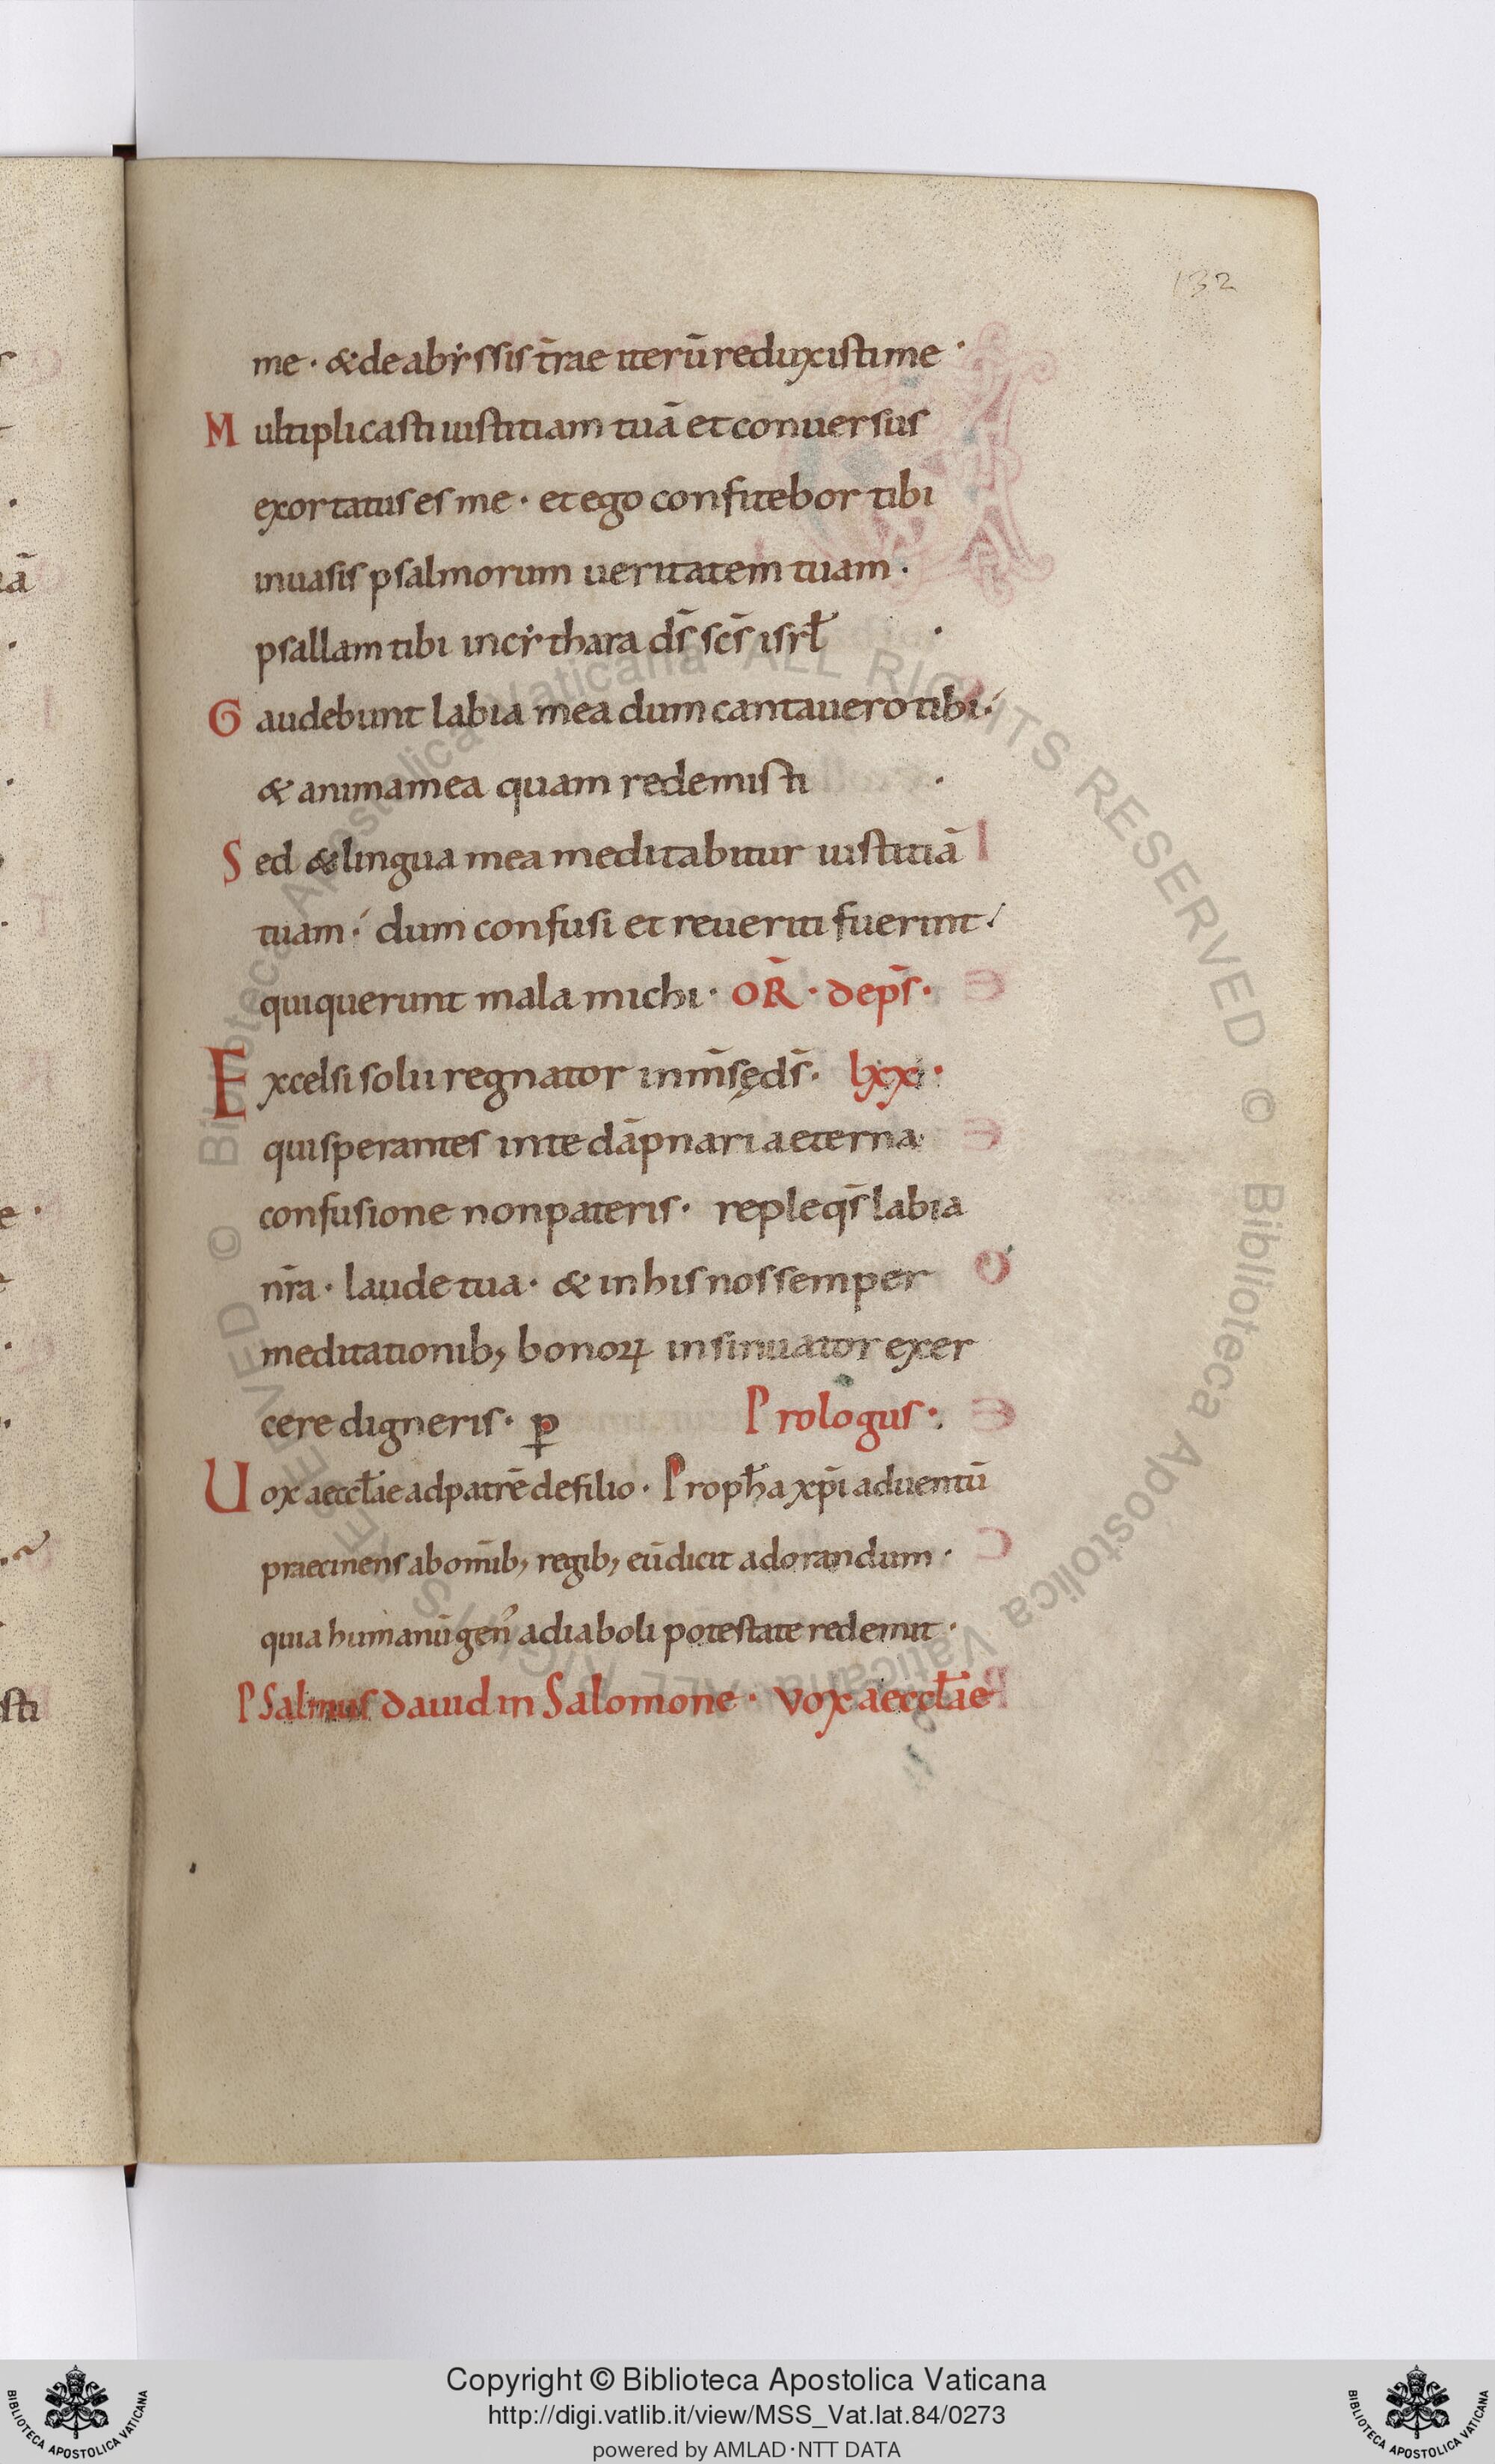 132
me · & de abẏssis t̄rae iterū reduxisti me ·
Multiplicasti iustitiam tuā et conuersus
exortatus es me · et ego confitebor tibi
inuasis psalmorum ueritatem tuam ·
psallam tibi incẏthara d̄s sc̄s isrł ·
Gaudebunt labia mea dum cantauero tibi ·
& anima mea quam redemisti ·
Sed & lingua mea meditabitur iustitiā
tuam · dum confusi et reueriti fuerint ·
qui querunt mala michi · OR̄ · de ps̄ ·
Excelsi solii regnator inm̄sę d̄s · lxx ·
qui sperantes inte dāpnari aeterna
confusione non pateris · reple qs̄ labia
nr̄a · laude tua · & in his nos semper
meditationib; bonoꝝ insinuator exer
cere digneris · ꝑ Prologus ·
Uox aeccłae ad patrē de filio · Propħa xp̄i aduentū
praecinens ab om̄ib; regib; eū dicit adorandum ·
quia humanū gen᾽ a diaboli potestate redemit ·
Psalmus dauid in Salomone · vox aeccłae
Copyright © Biblioteca Apostolica Vaticana
http://digi.vatlib.it/view/MSS_Vat.lat.84/0273
powered by AMLAD·NTT DATA